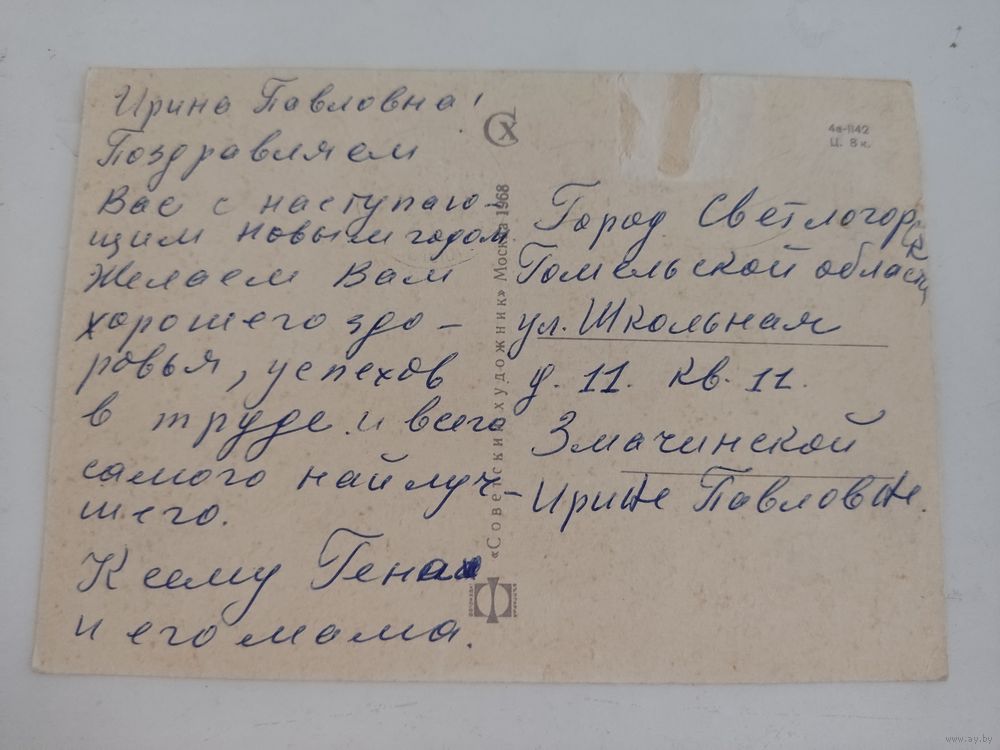 Ирина Павловна!
Поздравляем
Вас с наступаю-
щим новым годом
Желаем Вам
хорошего здо-
ровья, успехов
в труде и всего
самого найлуч-
шего.
К сему Гена
и его мама.
«Советский художник» Москва 1968
СХ
4в-1142
Ц. 8 к.
Город Светлогорск
Гомельской области
ул. Школьная
д. 11. кв. 11.
Змачинской
Ирине Павловне.
www.ay.by